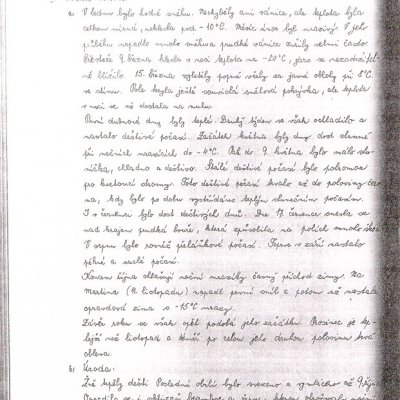 a. V lednu bylo hodně sněhu. Nechyběly ani vánice, ale teplota byla
celkem mírná, neklesla pod -10°C. Měsíc únor byl mrazivý. V jeho
průběhu napadlo mnoho sněhu a prudké vánice zuřily velmi často.
Protože 9. března klesla v noci teplota na -20°C, jaro se nezadržitel
ně blížilo. 15. března vyletěly poprvé včely za jasné oblohy při 8°C
ve stínu. Pole kryla ještě souvislá sněhová pokrývka, ale teplota
v noci se už dostala na nulu.
První dubnové dny byly teplé. Druhý týden se však ochladilo a
nastalo deštivé počasí. Začátek května byly dny dost slunné
při nočních mrazících do -4°C. Od do 9. května bylo málo slu-
níčka, chladno a deštivo. Stálé deštivé počasí bylo pohromou
pro kvetoucí stromy. Toto deštivé počasí trvalo až do poloviny čer
na, kdy bylo po dobu vystřídáno teplým slunečním počasím.
I v červnu bylo dost deštivých dnů. Dne 17. července snesla se
nad krajem prudká bouře, která způsobila na polích mnoho škod.
V srpnu bylo rovněž přeháňkové počasí. Teprve v září nastalo
pěkné a suché počasí.
Koncem října ohlašují noční mrazíky časný příchod zimy. Na
Martina (11. listopadu) napadl první sníh a potom už nastala
opravdová zima s -15°C mrazy.
Závěr roku se však opět podobá jeho začátku. Prosinec je tep
lejší než listopad a téměř po celou jeho druhou polovinu trvá
obleva.
b. Úroda:
Žně kazily deště. Poslední obilí bylo svezeno a vymláceno až 9. října